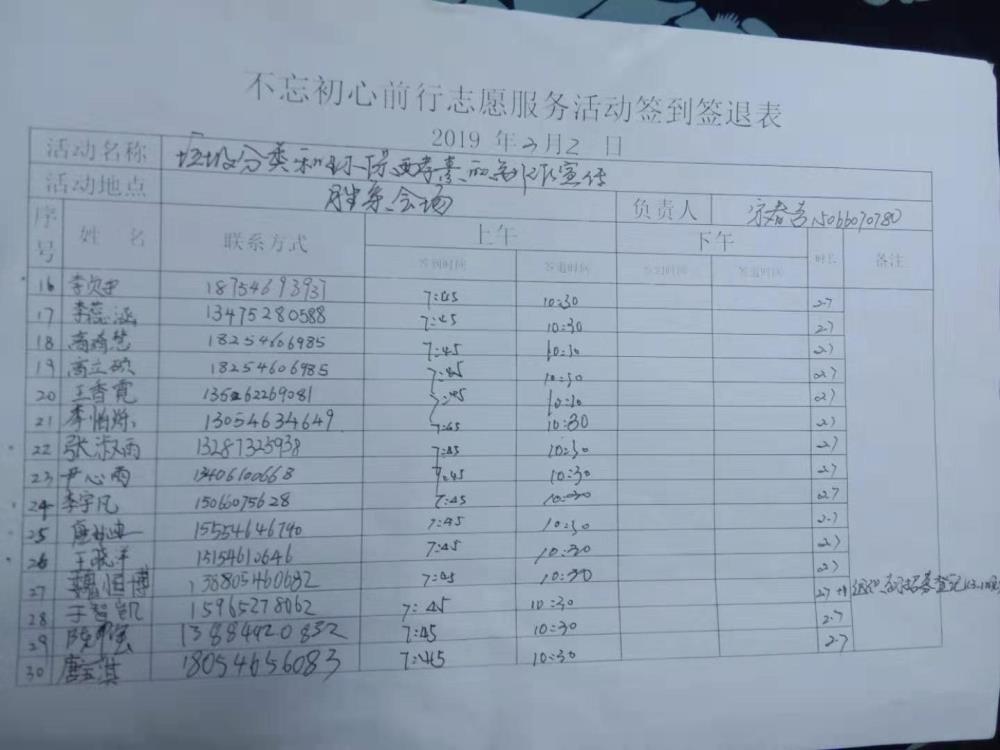 不忘初心前行志愿服务活动签到签退表
2019 年 2月2 日
活动名称 垃圾分类和环保酵素的制作宣传
活动地点 胜采会场 负责人
序号 姓 名 联系方式 上午 下午 时长 备注
签到时间 签退时间 签到时间 签退时间
16 18754693937 7:45 10:30 2.7
17 李蕊涵 13475280588 7:45 10:30 2.7
18 18254606985 7:45 10:30 2.7
19 高立硕 18254606985 7:45 10:30 2.7
20 王香霓 7:45 10:30 2.7
21 李怡烁 13054634649 7:45 10:30 2.7
22 张淑雨 13287325938 7:45 10:30 2.7
23 尹心雨 13406100668 7:45 10:30 2.7
24 李宇凡 15066075628 7:45 10:30 2.7
25 15554646790 7:45 10:30 2.7
26 王晓平 15154610646 7:45 10:30 2.7
27 魏恒博 138805460682 7:45 10:30 2.7
28 于智凯 15965278062 7:45 10:30 2.7
29 13884920832 7:45 10:30 2.7
30 唐玉淇 18054656083 7:45 10:30